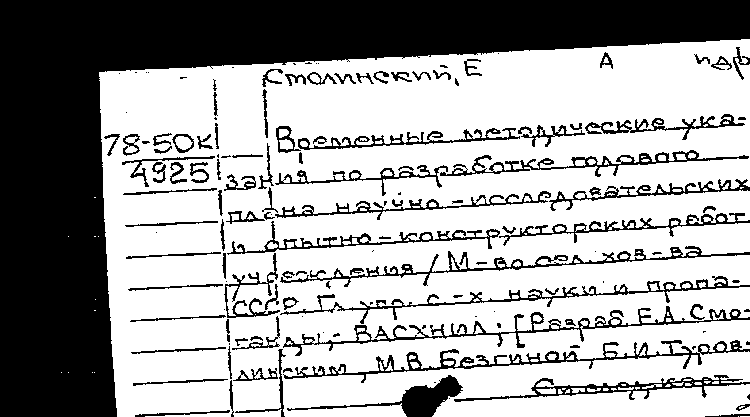 Столинский, Е А
78-50к Временные методические ука-
4925 зания по разработке годового
плана научно-исследовательских
и опытно-конструкторских работ
учреждения / М-во сел. хоз-ва
СССР. Гл. упр. с.-х. науки и пропа-
ганды; - ВАСХНИЛ; [Разраб. Е.А. Сто-
линским, М.В. Безгиной, Б.И. Туров-
См. след. карт.